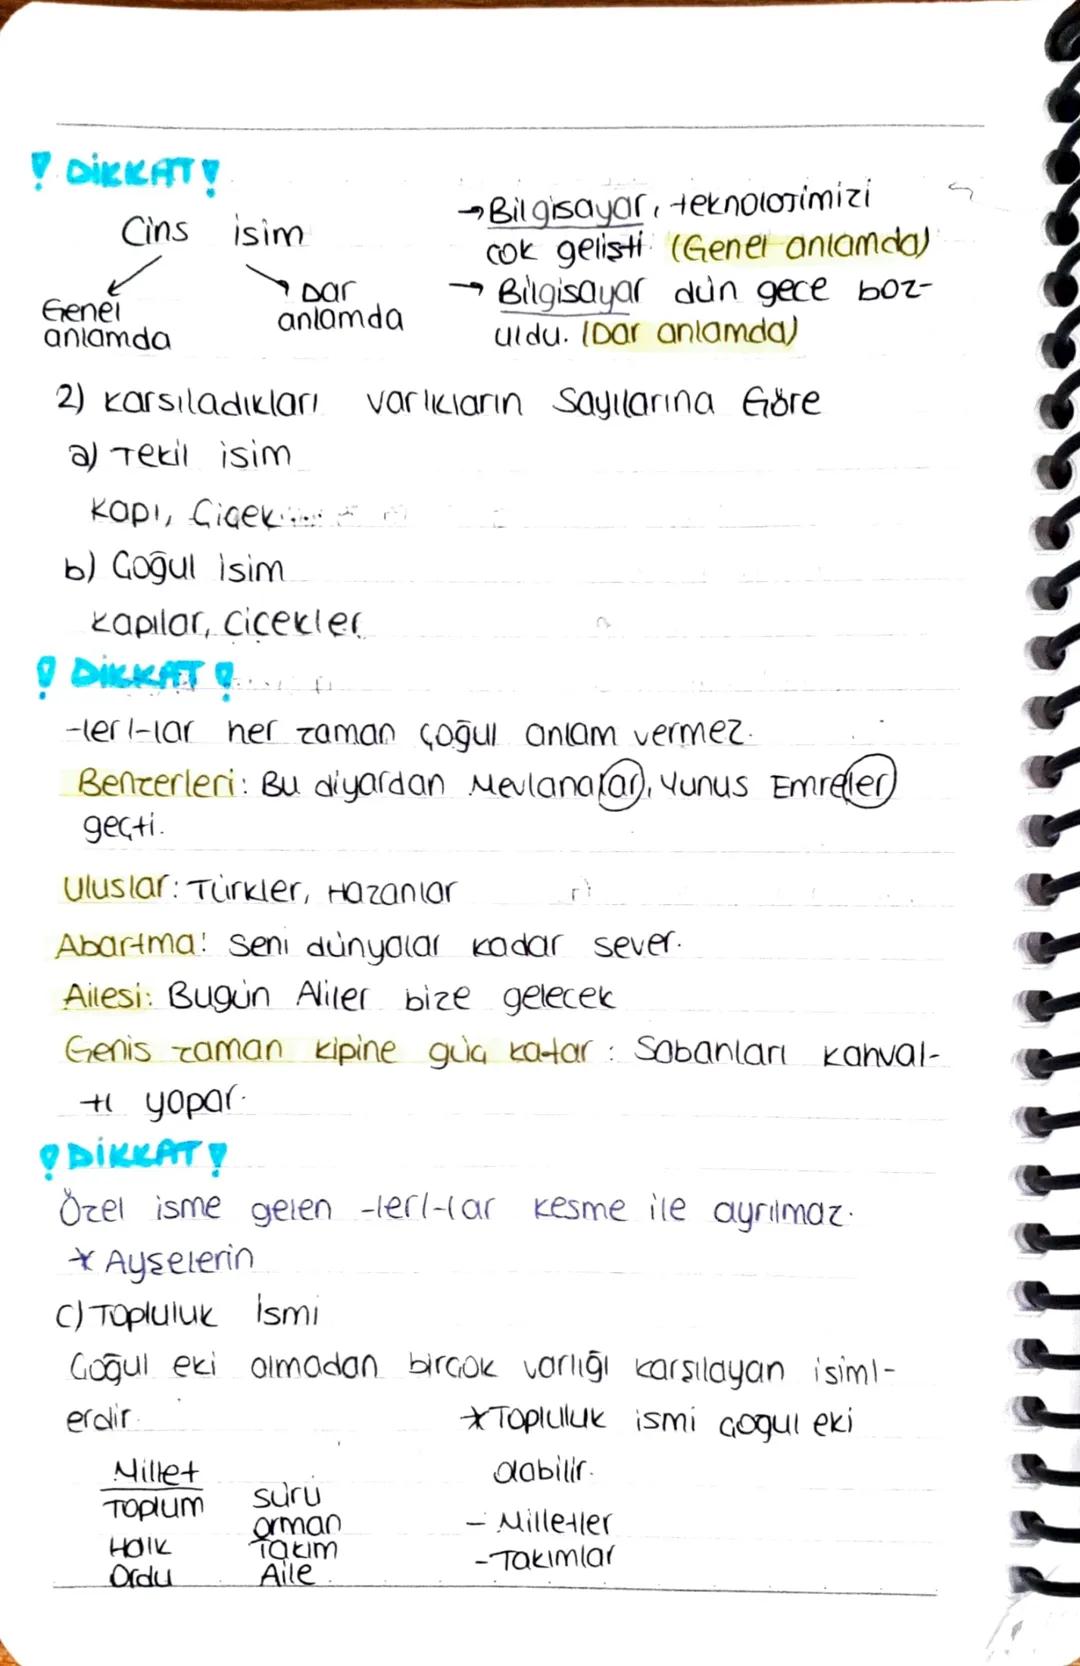 ! DİKKAT !
Cins isim
Genel
anlamda
Dar
anlamda
→ Bilgisayar, teknolojimizi
çok gelişti. (Genel anlamda)
→ Bilgisayar dün gece boz-
uldu. (Dar anlamda)
2) Karsıladıkları varlıkların Sayılarına Göre
a) Tekil isim
Kapı, Çiçek
b) Çoğul İsim
Kapılar, Çiçekler
! DİKKAT !
-ler/-lar her zaman çoğul anlam vermez.
Benzerleri: Bu diyardan Mevlanalar, Yunus Emreler
geçti.
Uluslar: Türkler, Hazanlar
Abartma: Seni dünyalar kadar sever.
Ailesi: Bugün Aliler bize gelecek
Genis zaman kipine güç katar: Sabanları kahval-
tı yapar.
! DİKKAT !
Özel isme gelen -ler/-lar kesme ile ayrılmaz.
* Ayşelerin
C) Topluluk İsmi
Çoğul eki almadan birçok varlığı karşılayan isiml-
erdir.
* Topluluk ismi çogul eki
alabilir.
- Milletler
- Takımlar
Millet
Toplum
Halk
Ordu
sürü
orman
Takım
Aile